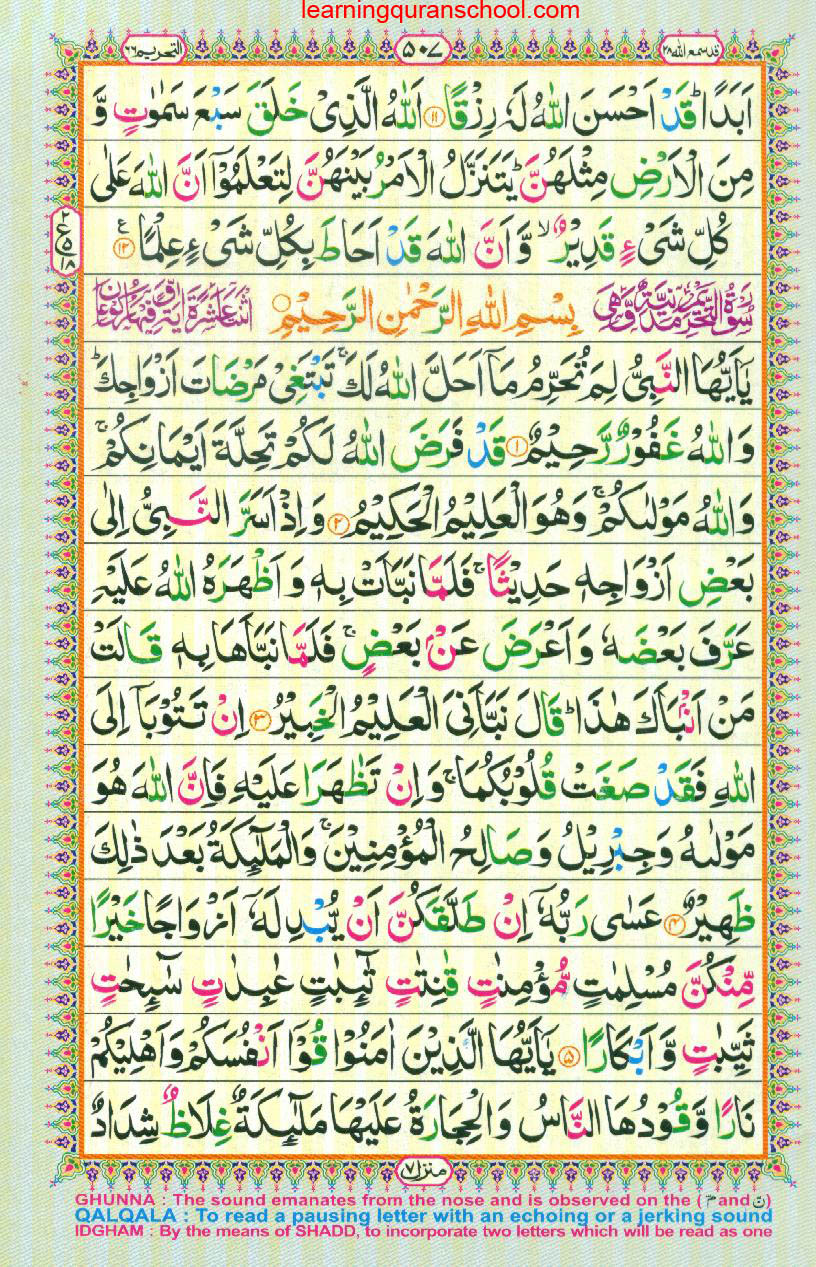 learningquranschool.com
قد سمع الله ۲۸
۵۰۷
التحریم ۶۶
اَبَدًا ؕ قَدْ اَحْسَنَ اللّٰهُ لَهٗ رِزْقًا ۝۱۱ اَللّٰهُ الَّذِیْ خَلَقَ سَبْعَ سَمٰوٰتٍ وَّ
مِنَ الْاَرْضِ مِثْلَهُنَّ ؕ یَتَنَزَّلُ الْاَمْرُ بَیْنَهُنَّ لِتَعْلَمُوْۤا اَنَّ اللّٰهَ عَلٰی
كُلِّ شَیْءٍ قَدِیْرٌ ۙ۬ وَّ اَنَّ اللّٰهَ قَدْ اَحَاطَ بِكُلِّ شَیْءٍ عِلْمًا ۝۱۲ ع
۲
ع
۵
۱۸
سُوْرَةُ التَّحْرِیْمِ مَدَنِیَّةٌ وَّهِیَ بِسْمِ اللّٰهِ الرَّحْمٰنِ الرَّحِیْمِ ۝ اثْنَتَا عَشْرَةَ اٰیَةً وَّفِیْهَا رُكُوْعَانِ
یٰۤاَیُّهَا النَّبِیُّ لِمَ تُحَرِّمُ مَاۤ اَحَلَّ اللّٰهُ لَكَ ۚ تَبْتَغِیْ مَرْضَاتَ اَزْوَاجِكَ ؕ
وَ اللّٰهُ غَفُوْرٌ رَّحِیْمٌ ۝۱ قَدْ فَرَضَ اللّٰهُ لَكُمْ تَحِلَّةَ اَیْمَانِكُمْ ۚ
وَ اللّٰهُ مَوْلٰىكُمْ ۚ وَ هُوَ الْعَلِیْمُ الْحَكِیْمُ ۝۲ وَ اِذْ اَسَرَّ النَّبِیُّ اِلٰی
بَعْضِ اَزْوَاجِهٖ حَدِیْثًا ۚ فَلَمَّا نَبَّاَتْ بِهٖ وَ اَظْهَرَهُ اللّٰهُ عَلَیْهِ
عَرَّفَ بَعْضَهٗ وَ اَعْرَضَ عَنْۢ بَعْضٍ ۚ فَلَمَّا نَبَّاَهَا بِهٖ قَالَتْ
مَنْ اَنْۢبَاَكَ هٰذَا ؕ قَالَ نَبَّاَنِیَ الْعَلِیْمُ الْخَبِیْرُ ۝۳ اِنْ تَتُوْبَاۤ اِلَی
اللّٰهِ فَقَدْ صَغَتْ قُلُوْبُكُمَا ۚ وَ اِنْ تَظٰهَرَا عَلَیْهِ فَاِنَّ اللّٰهَ هُوَ
مَوْلٰىهُ وَ جِبْرِیْلُ وَ صَالِحُ الْمُؤْمِنِیْنَ ۚ وَ الْمَلٰٓىِٕكَةُ بَعْدَ ذٰلِكَ
ظَهِیْرٌ ۝۴ عَسٰی رَبُّهٗۤ اِنْ طَلَّقَكُنَّ اَنْ یُّبْدِلَهٗۤ اَزْوَاجًا خَیْرًا
مِّنْكُنَّ مُسْلِمٰتٍ مُّؤْمِنٰتٍ قٰنِتٰتٍ تٰٓىِٕبٰتٍ عٰبِدٰتٍ سٰٓىِٕحٰتٍ
ثَیِّبٰتٍ وَّ اَبْكَارًا ۝۵ یٰۤاَیُّهَا الَّذِیْنَ اٰمَنُوْا قُوْۤا اَنْفُسَكُمْ وَ اَهْلِیْكُمْ
نَارًا وَّ قُوْدُهَا النَّاسُ وَ الْحِجَارَةُ عَلَیْهَا مَلٰٓىِٕكَةٌ غِلَاظٌ شِدَادٌ
منزل ۷
GHUNNA : The sound emanates from the nose and is observed on the ( مّ and نّ )
QALQALA : To read a pausing letter with an echoing or a jerking sound
IDGHAM : By the means of SHADD, to incorporate two letters which will be read as one